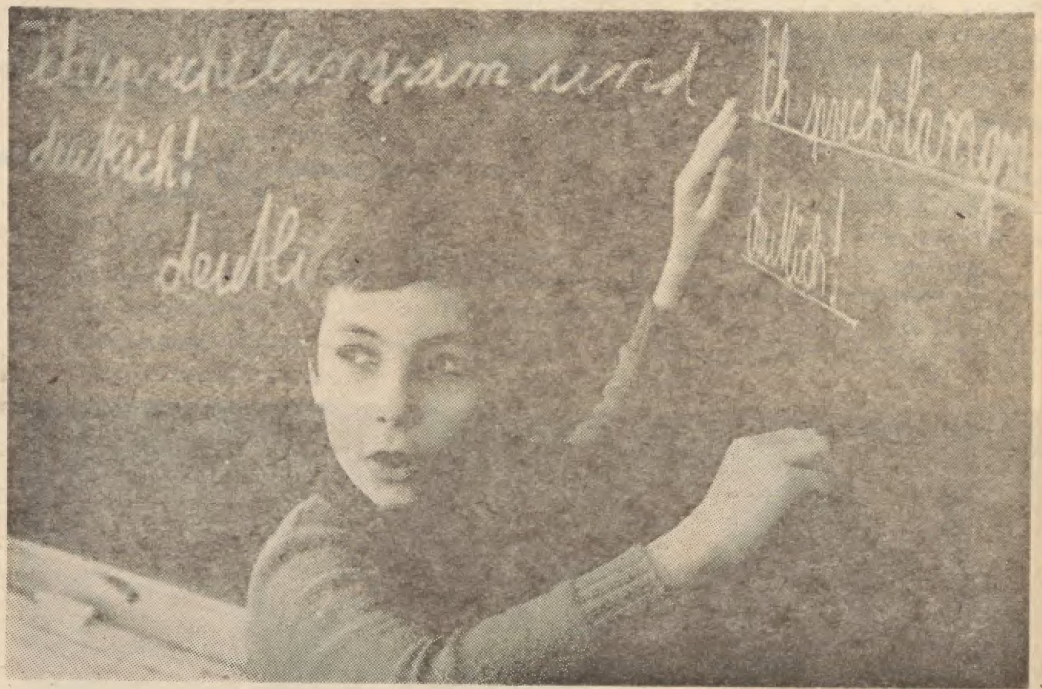 Ich spreche langsam und
deutlich!
deutli
Ich spreche langsam
deutlich!